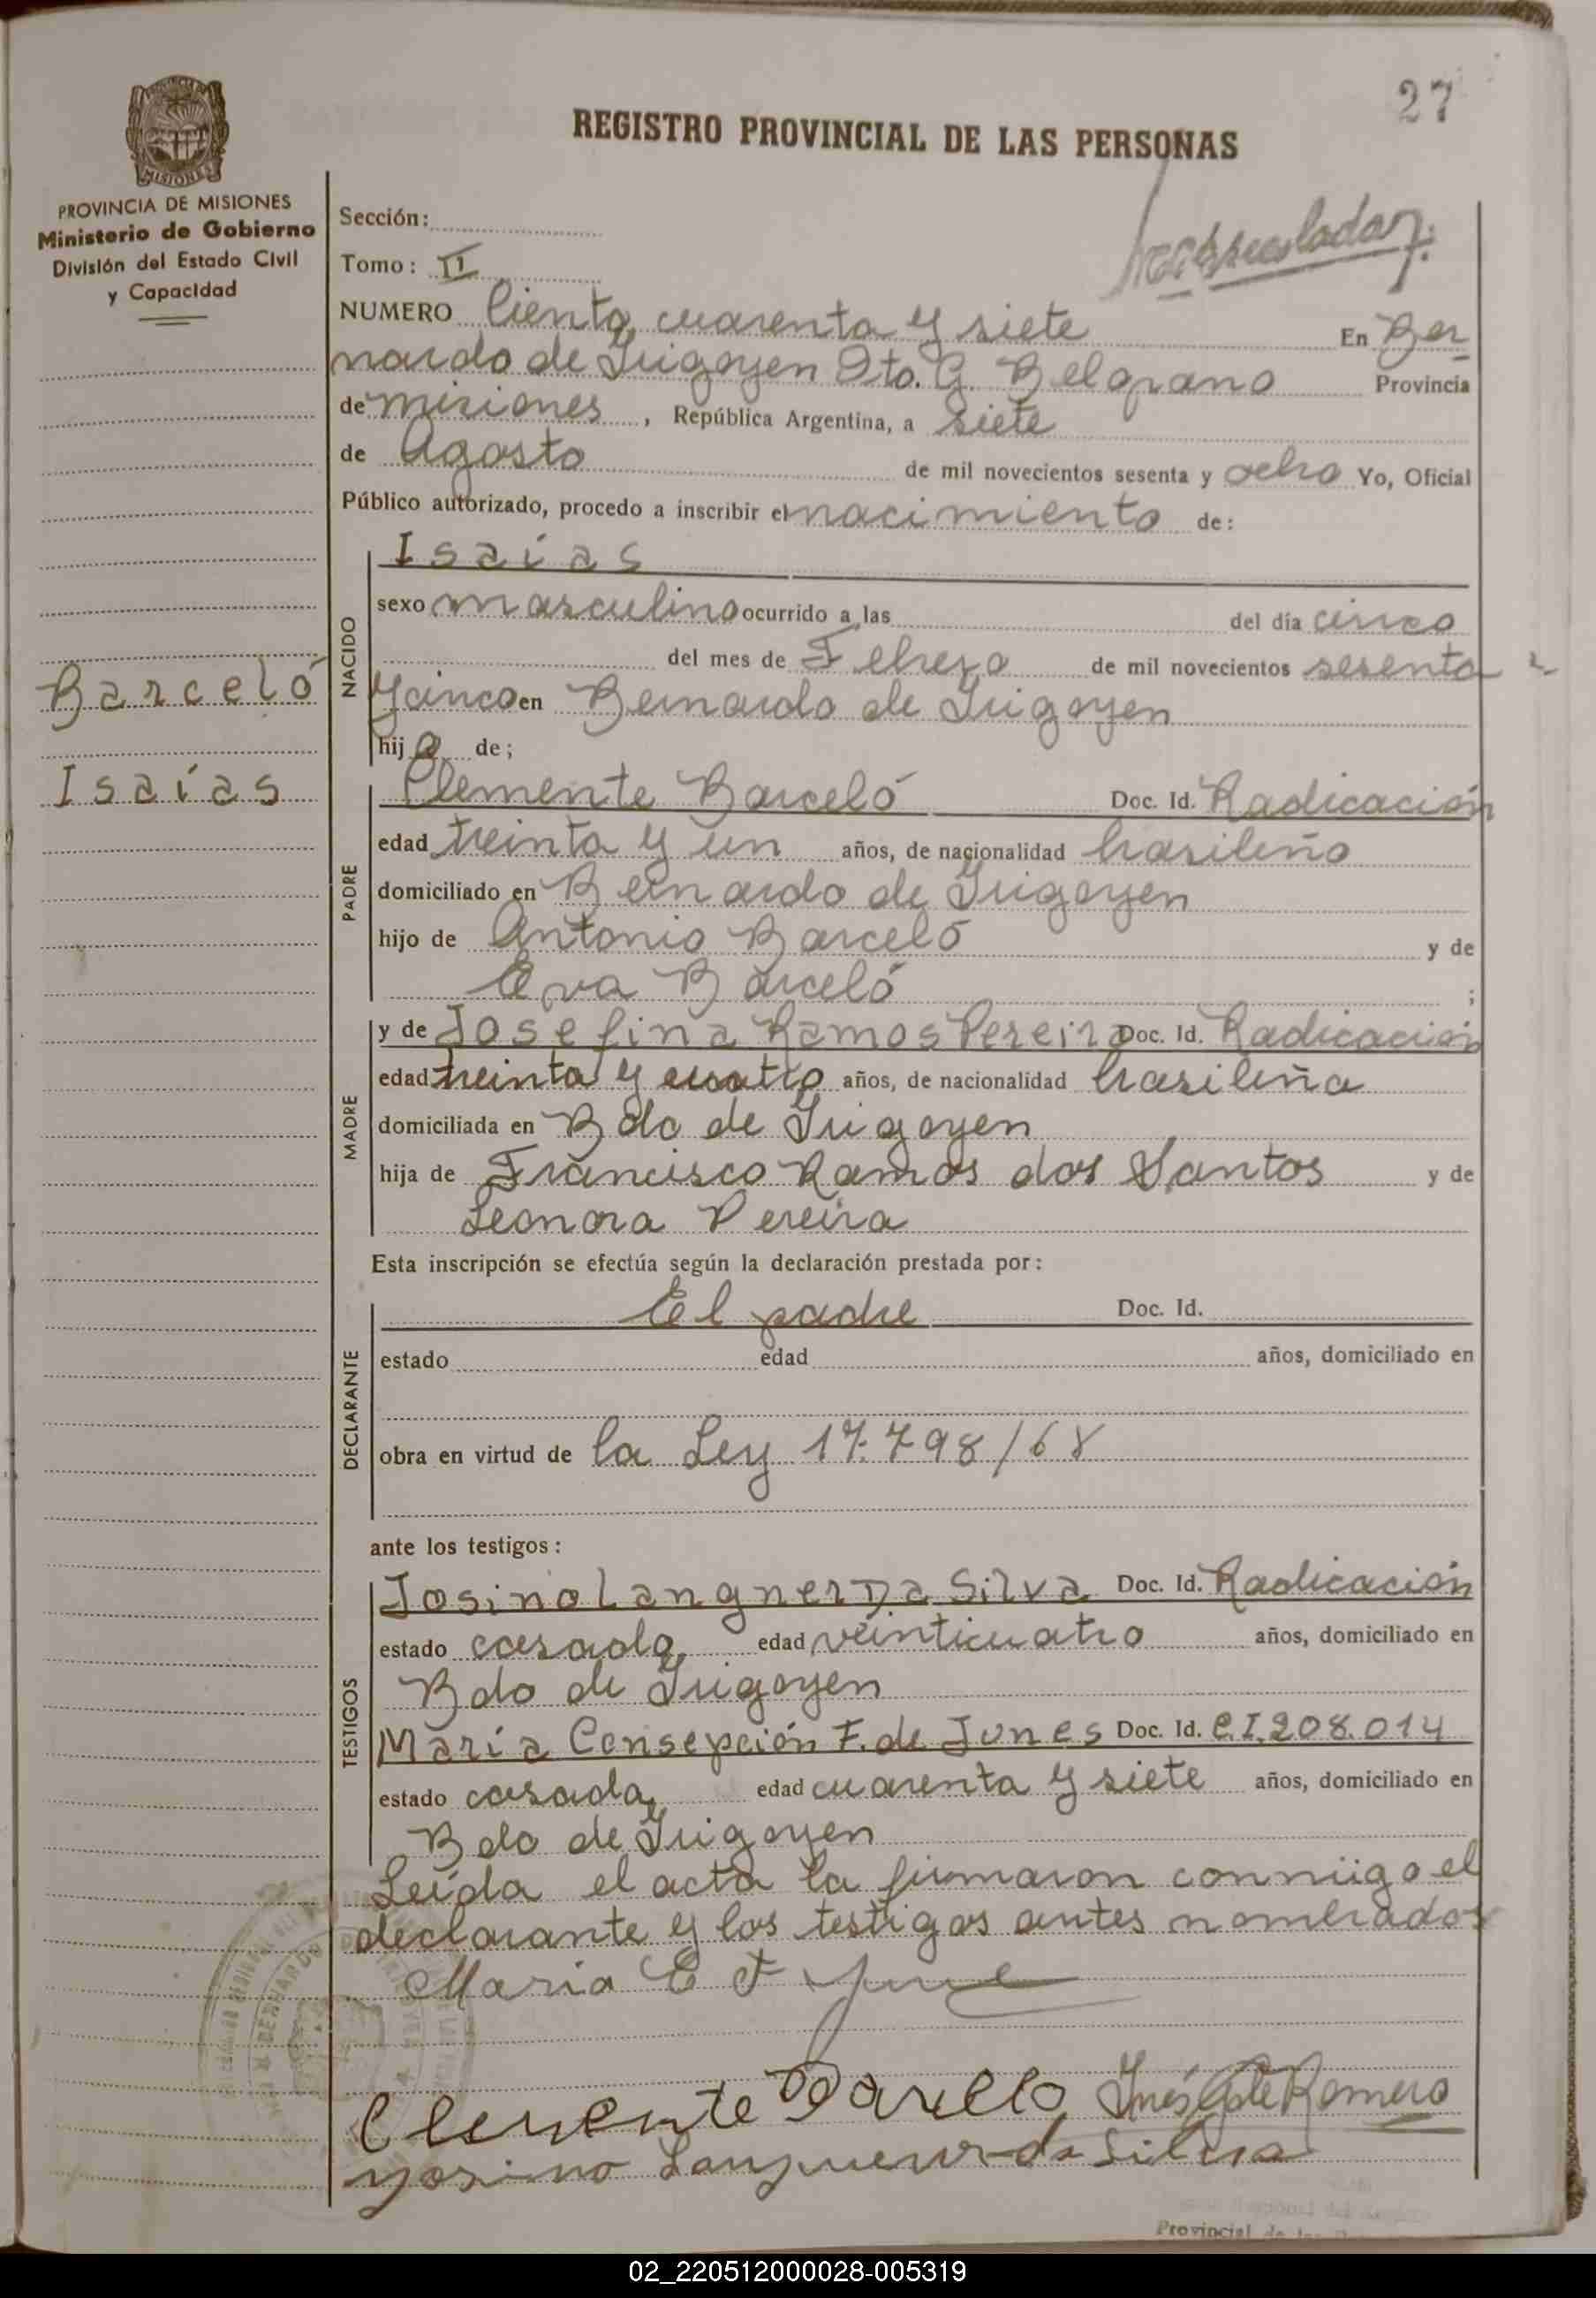 27
REGISTRO PROVINCIAL DE LAS PERSONAS
PROVINCIA DE MISIONES
Ministerio de Gobierno
División del Estado Civil
y Capacidad
Sección:
Tomo: II
NUMERO Ciento cuarenta y siete En Ber
nardo de Irigoyen Dto. G. Belgrano Provincia
de misiones, República Argentina, a siete
de Agosto de mil novecientos sesenta y ocho Yo, Oficial
Público autorizado, procedo a inscribir el nacimiento de:
NACIDO
Isaías
sexo masculino ocurrido a las del día cinco
del mes de Febrero de mil novecientos sesenta
y cinco en Bernardo de Irigoyen
hijo de;
Barceló
Isaías
PADRE
Clemente Barceló Doc. Id. Radicación
edad treinta y un años, de nacionalidad brasileño
domiciliado en Bernardo de Irigoyen
hijo de Antonio Barceló y de
Eva Barceló ;
MADRE
y de Josefina Ramos Pereira Doc. Id. Radicación
edad treinta y cuatro años, de nacionalidad brasileña
domiciliada en Bdo de Irigoyen
hija de Francisco Ramos dos Santos y de
Leonora Pereira
Esta inscripción se efectúa según la declaración prestada por:
DECLARANTE
El padre Doc. Id.
estado edad años, domiciliado en
obra en virtud de la Ley 17.798/68
ante los testigos:
TESTIGOS
Josino Langner Da Silva Doc. Id. Radicación
estado casado edad veinticuatro años, domiciliado en
Bdo de Irigoyen
María Consepción F. de Junes Doc. Id. C.I. 208.014
estado casada edad cuarenta y siete años, domiciliado en
Bdo de Irigoyen
Leída el acta la firmaron conmigo el
declarante y los testigos antes nombrados
Maria C F
Clemente Barcelo Inés de Romero
Yosino da Silva
Provincial de
02_220512000028-005319